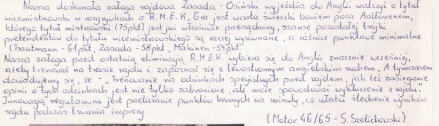 Nasza doskonała załoga rajdowa Zasada - Osiński wyjeżdża do Anglii walczyć o tytuł
wicemistrzowski w rozgrywkach o R.M.E.K. Gra jest warta świeczki bowiem poza Aaltonenem,
którego tytuł mistrzowski (75pkt) jest już właściwie przesądzony, szanse pozostałej trójki
pretendentów do tytułu wicemistrzowskiego są raczej wyrównane, a różnice punktowe minimalne
(Trautmann - 61pkt, Zasada - 58pkt, Mäkinen - 54pkt)
Nasza załoga przed ostatnią eliminacją R.M.E.K. wybiera się do Anglii znacznie wcześniej,
ażeby trenować na trasie rajdu i zapoznać się z lewostronnym angielskim ruchem. A tymczasem
dowiadujemy się, że - Trenowanie na odcinkach specjalnych przed rajdem, jak też zasięganie
opinii o tych odcinkach jest nie tylko zabronione, ale może spowodować wykluczenie z rajdu.
Innowacją regulaminu jest przeliczanie punktów karnych na minuty, co ułatwi śledzenie wyników
rajdu podczas trwania imprezy
(Motor 46/65 - S. Szelichowski)